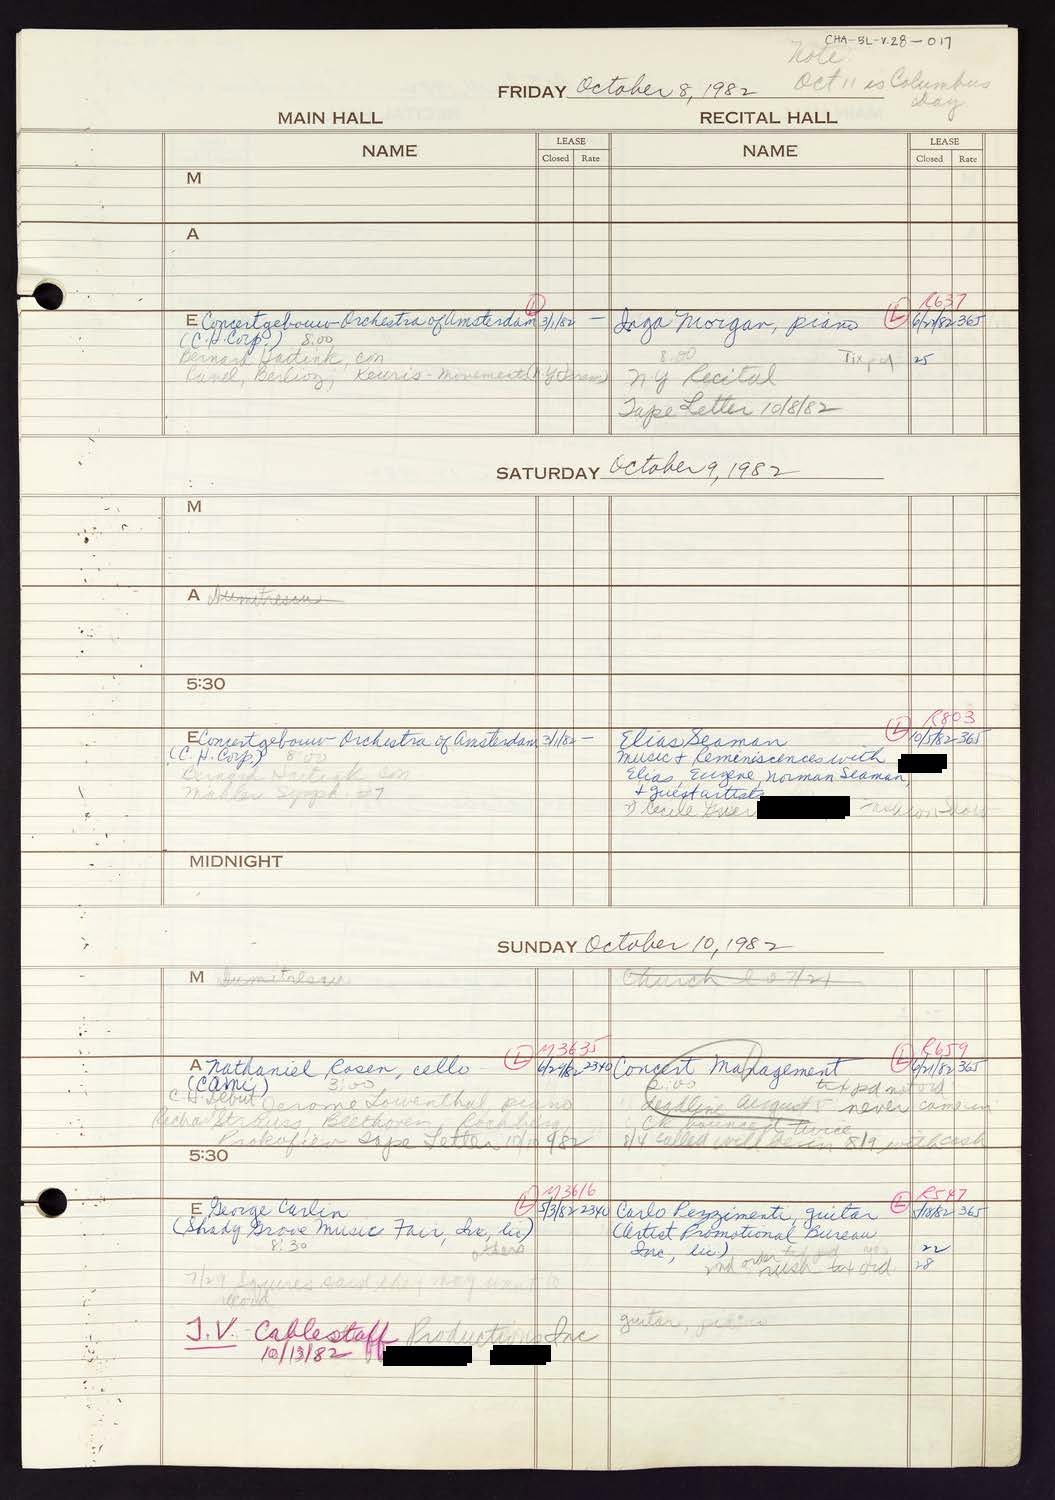 CHA-BL-V.28-017
Note
Oct 11 is Columbus
day
FRIDAY October 8, 1982
MAIN HALL RECITAL HALL
NAME LEASE NAME LEASE
Closed Rate Closed Rate
M
A
L R637
E Concertgebouw Orchestra of Amsterdam 3/1/82 — Inga Morgan, piano L 365
(C.H. Corp.) 8:00
Bernard Haitink, con 8:00 Tix pd 25
Ravel, Berlioz; Keuris - Movements (NY Prem) NY Recital
Tape Letter 10/8/82
SATURDAY October 9, 1982
M
A Dumitrescu
5:30
R803
E Concertgebouw Orchestra of Amsterdam 3/1/82 — Elias Seaman L 10/5/82 365
(C.H. Corp.) 8:00 Music + Reminiscences with
Bernard Haitink con Elias, Eugene, Norman Seaman,
Mahler Symph #7 + guest artists
MIDNIGHT
SUNDAY October 10, 1982
M Dumitrescu Church
M3635 R659
A Nathaniel Rosen, cello L 2340 Concert Management L 6/21/82 365
(CAMI) 3:00 2:00 tix pd not ord
C.H. Debut Jerome Lowenthal piano deadline August 5 never came in
Richard Strauss, Beethoven, Rochberg, Ck bounced twice
Prokofiev Tape Letter 8/4 called will be in 8/9 with cash
5:30
M3616 R547
E George Carlin L 5/3/82 2340 Carlo Pezzimenti, guitar L 5/18/82 365
(Shady Grove Music Fair, Inc, lic) (Artist Promotional Bureau
8:30 Inc, lic.) 22
2nd order rush tix ord 28
7/29 Squires said they may want to
record
guitar, piano
T.V. Cablestaff Productions Inc
10/13/82